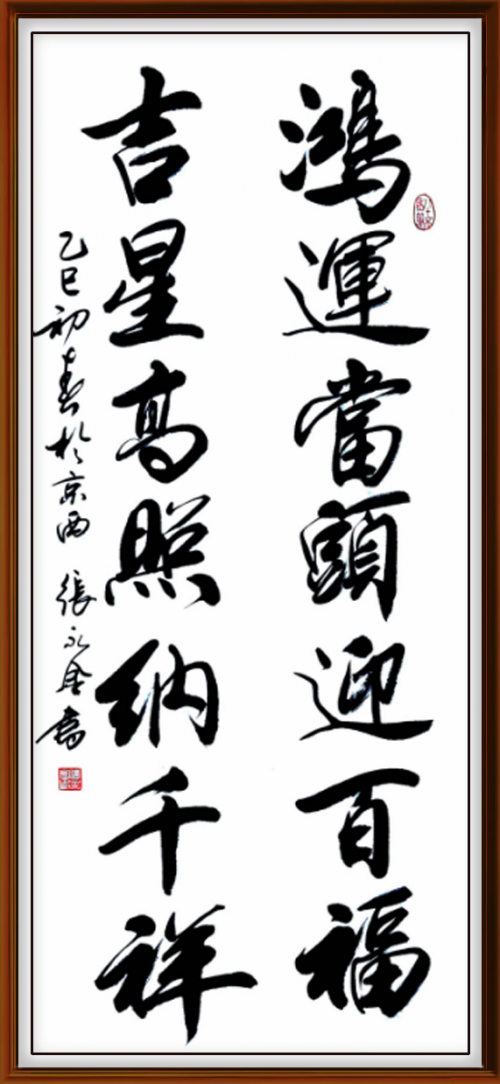 鴻運當頭迎百福
吉星高照納千祥
乙巳初春於京西 張永書